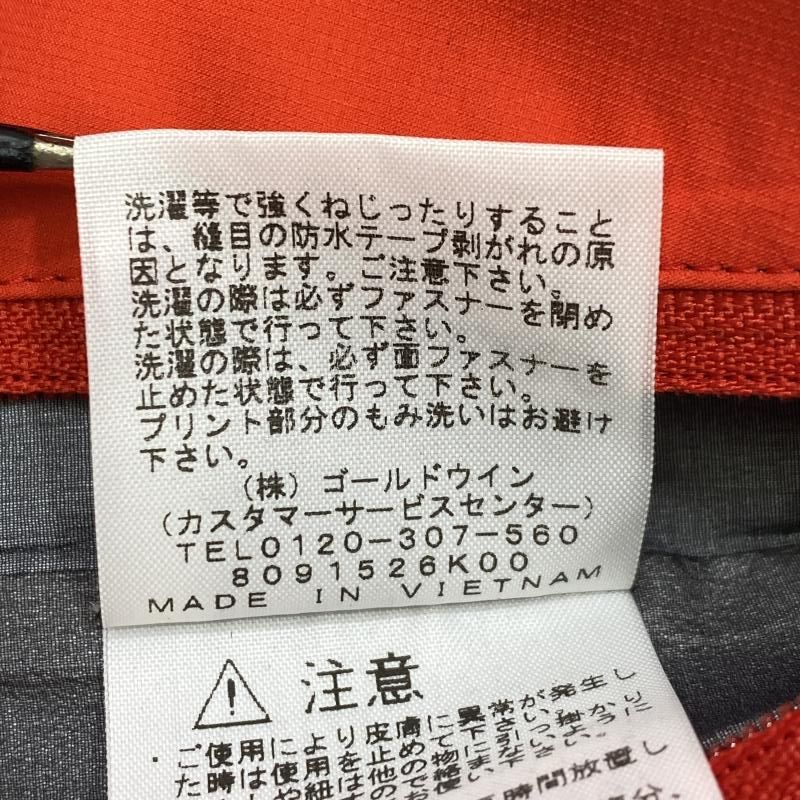 洗濯等で強くねじったりすること
は、縫目の防水テープ剥がれの原
因となります。ご注意下さい。
洗濯の際は必ずファスナーを閉め
た状態で行って下さい。
洗濯の際は、必ず面ファスナーを
止めた状態で行って下さい。
プリント部分のもみ洗いはお避け
下さい。
(株)ゴールドウイン
(カスタマーサービスセンター)
TEL0120-307-560
8091526K00
MADE IN VIETNAM
注意
ご使用により皮膚に異常が発生し
た時は使用を止めて下さい。
時間放置し